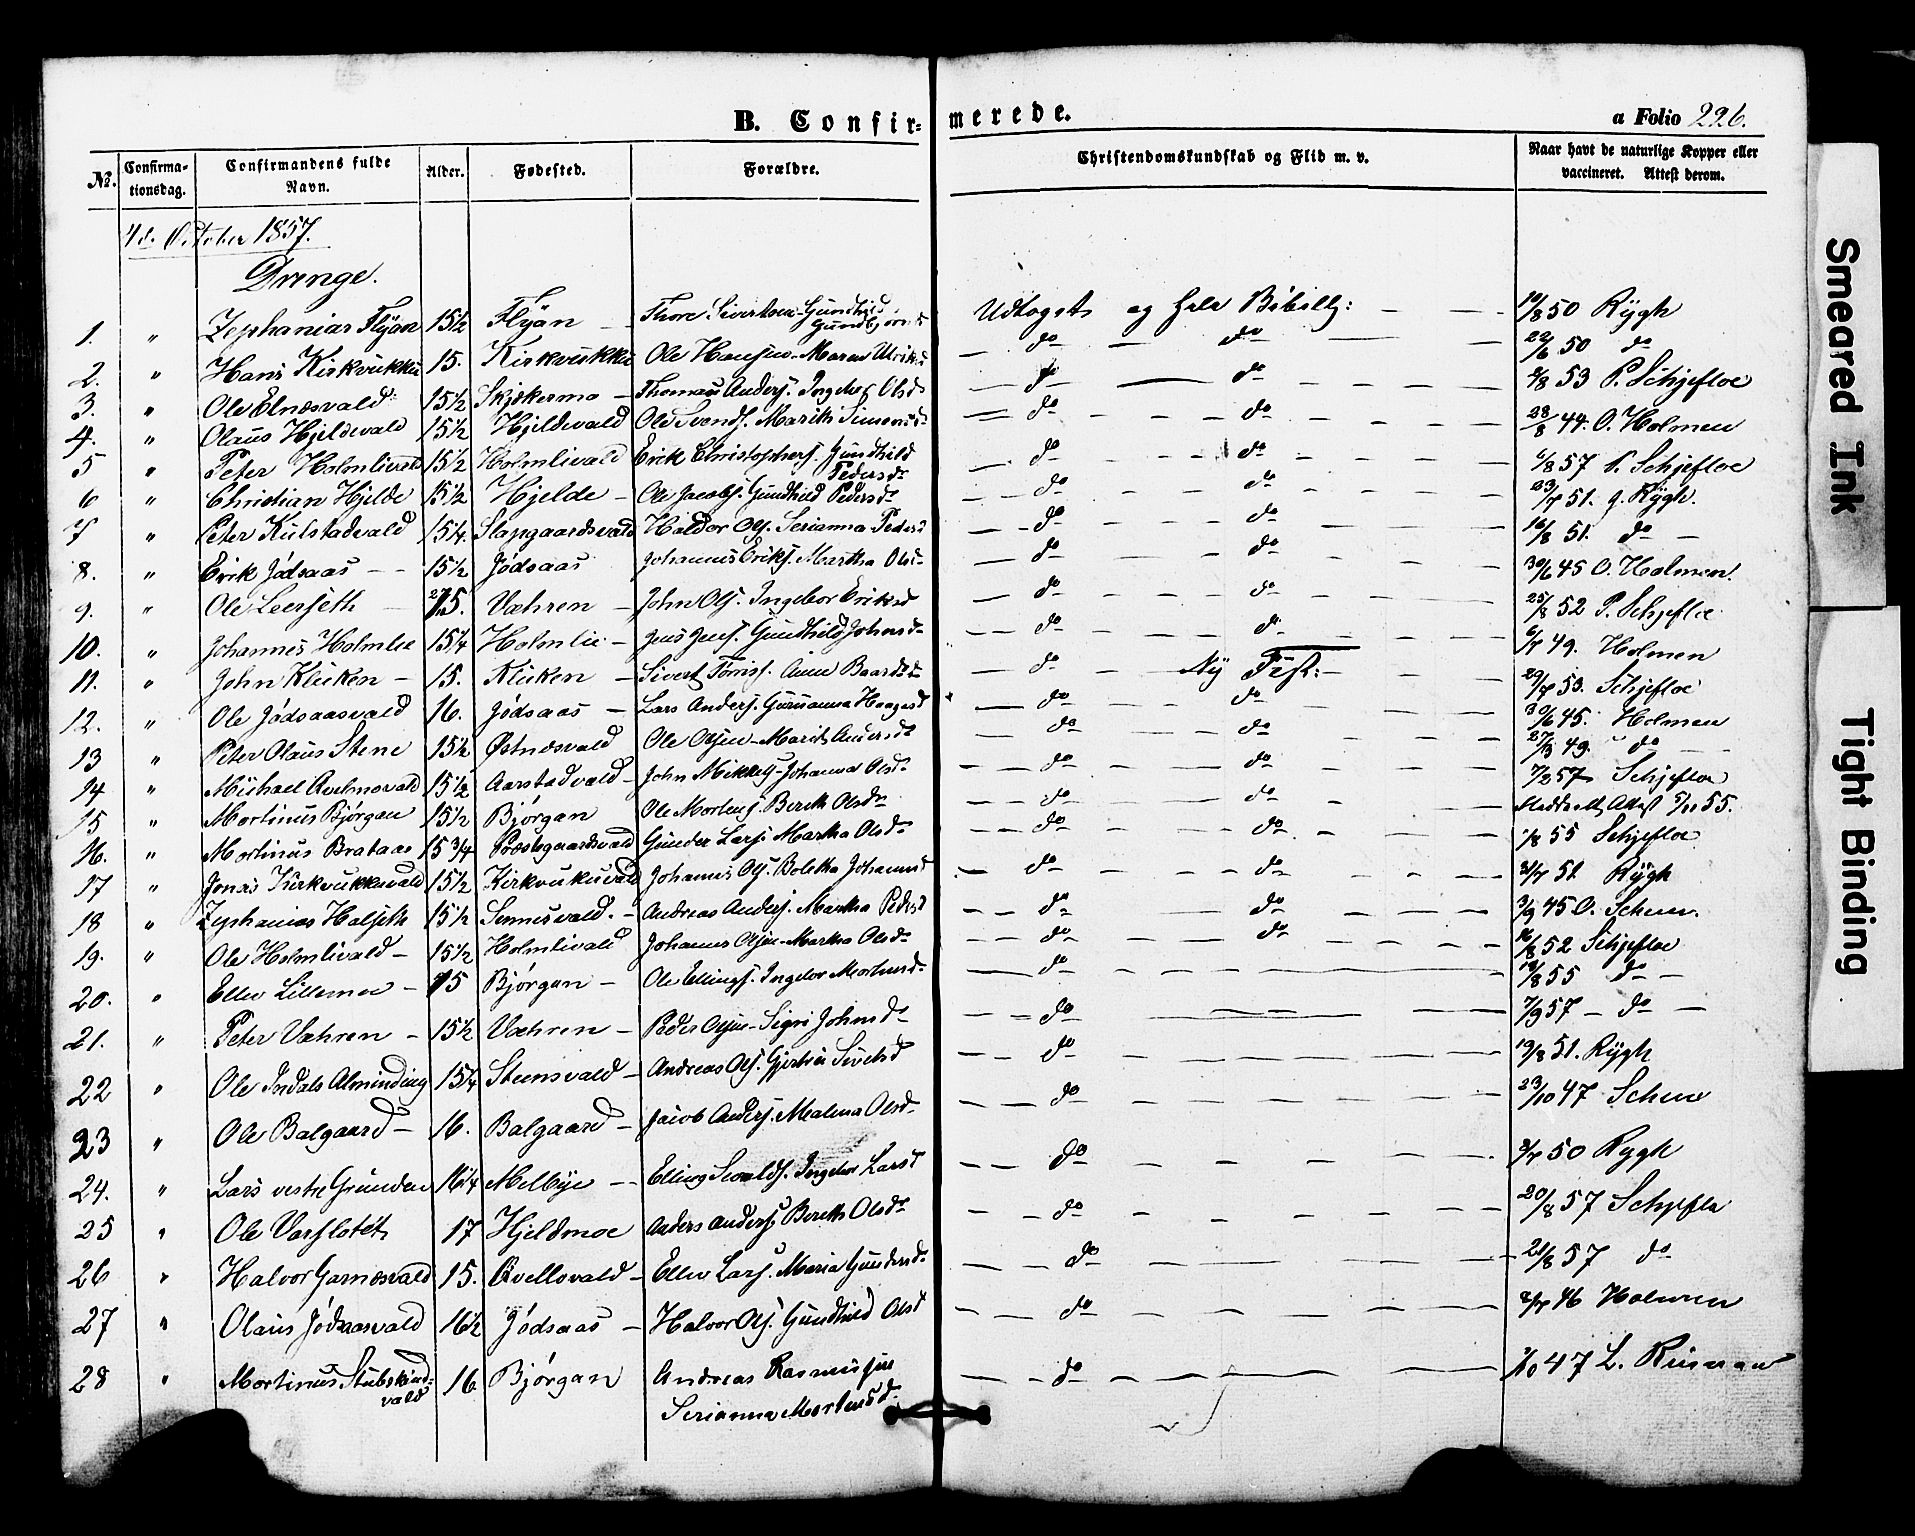 B. Confir= merede.
a Folio 226.
No. Confirma-tionsdag. Confirmandens fulde Navn. Alder. Fødested. Forældre. Christendomskundskab og Flid m. v. Naar havt de naturlige Kopper eller vaccineret. Attest derom.
4de October 1857.
Drenge.
1. " Zephanias Flyan 15½ Flÿan – Thore Sivertsen Gundhild Udtoget og hele – – 19/8 50 Rÿgh
2. " Hans Kirkvukku 15. Kirkvukku Ole Hansen – Maren – do – do – – 22/6 50 do
3. " Ole Elnæsvald 15½ Skjækermo – Thomas Anders. Ingebor Olsd – do – do – 2/8 53 P. Schjefloe
4. " Olaus Hjeldevald 15½ Hjeldevald Ole Svends. Marith Simonsd – do – – – do – – – 28/8 44. O. Holmen
5 " Peter Holmlivald 15½ Holmlivald Erik Christophers. Gundhild Pedersdr – do – – – do – – 6/8 57 P. Schjefloe
6 " Christian Hjelde 15½ Hjelde – Ole Jacobs. Gundhild Pedersdr – – do – – – do – – – 23/7 51. Rÿgh.
7 " Peter Kulstadvald 15¼. Slapgaardsvald Haldor Ols. Serianna Peders – – do – – – do – – 16/8 51. do –
8. " Erik Jódsaas – – 15½ Jódsaas Johannes Eriks. Martha Olsd – do – – – do – – 30/6 45 O. Holmen.
9. " Ole Leerseth – 15. Væhren – John Ols. Ingebor Eriksd – – do – – – do – – 25/8 52 P. Schjefloe
10. " Johannes Holmlie 15¼ Holmlie – Jens Jens. Gundhild Johnsd – – do – – – do – – – 6/7 49. Holmen
11. " John Kluken – 15. Kluken – Sivert Torris. Anne Baardsd – do – Ny Test: – – – 29/7 53. Schjefloe
12. " Ole Jódsaasvald 16. Jódsaas – Lars Anders. Gurianna Haagensd – – do – – do – – 30/6 45. Holmen
13 " Peter Olaus Stene 15½ Østnæsvald Ole Olsen – Marit Andersdr – do – – – do – – 49. do –
14 " Michael 15½ Aarstadvald – John Mikkels – Johanna Olsdr – – do – – – do – – 7/8 57 Schjefloe
15 " Mortinus Bjórgan 15½ Bjórgan Ole Mortens. Berith Olsdr – – do – – – do – – Attest 55.
16. " Mortinus Brataas 15¾ Præstegaardsvald Gunder Lars. Martha Olsdr – – do – – – do – – – 55 Schjefloe
17 " Jonas Kirkvukkuvald 15½ Kirkvukuvald Johannes Ols. Boletha Johannsd – – do – – – do – – – 51 Rÿgh
18 " Zephanias Halseth 15½ Sennesvald. – Andreas Anders. Martha Pedersd – – do – do – – – 3/9 45 O. Scheen.
19. " Ole Holmlivald – 15½ Holmlivald Johannes Olsen – Martha Olsdr – – do – – – do – – – 16/8 52 Schjefloe
20. " Ellev Lillemoe – 15 Bjórgan – Ole Ellings. Ingebor Mortensd – – do – – – 19/8 55 do –
21. " Peter Væhren – 15½ Væhren – Peder Olsen – Sigri Johnsdr – – do – – – 7/9 57 – do –
22 " Ole Indals Alminding 15¼ Steensvald – Andreas Ols. Gjertru Sivertsd – – do – – – 19/8 51. Rÿgh
23 " Ole Balgaard – 16. Balgaard – Jacob Anders. Malena Olsdr – – do – – – 23/10 47 Scheen
24. " Lars vestre Grunden 16¼ Melbÿe – – Elling Sivalds. Ingebor Larsd – – do – – – 50 Rygh
25 " Ole Varslótet 17 Hjeldmoe Anders Anders. Bereth Olsdr – – do – – – 20/8 57 Schjefla
26 " Halvor Garnæsvald 15. Qvellovald – Ellev Lars. Maria Gundersd – – do – – – 57 do
27 " Olaus Jódsaasvald 16½ Jódsaas – Halvor Ols. Gundhild Olsd – – do – – – 46 Holmen
28 " Mortinus Stubskindvald 16 Bjórgan Andreas Rasmussen – – do – – – 47 L.
Serianna Mortensdr
Smeared Ink
Tight Binding